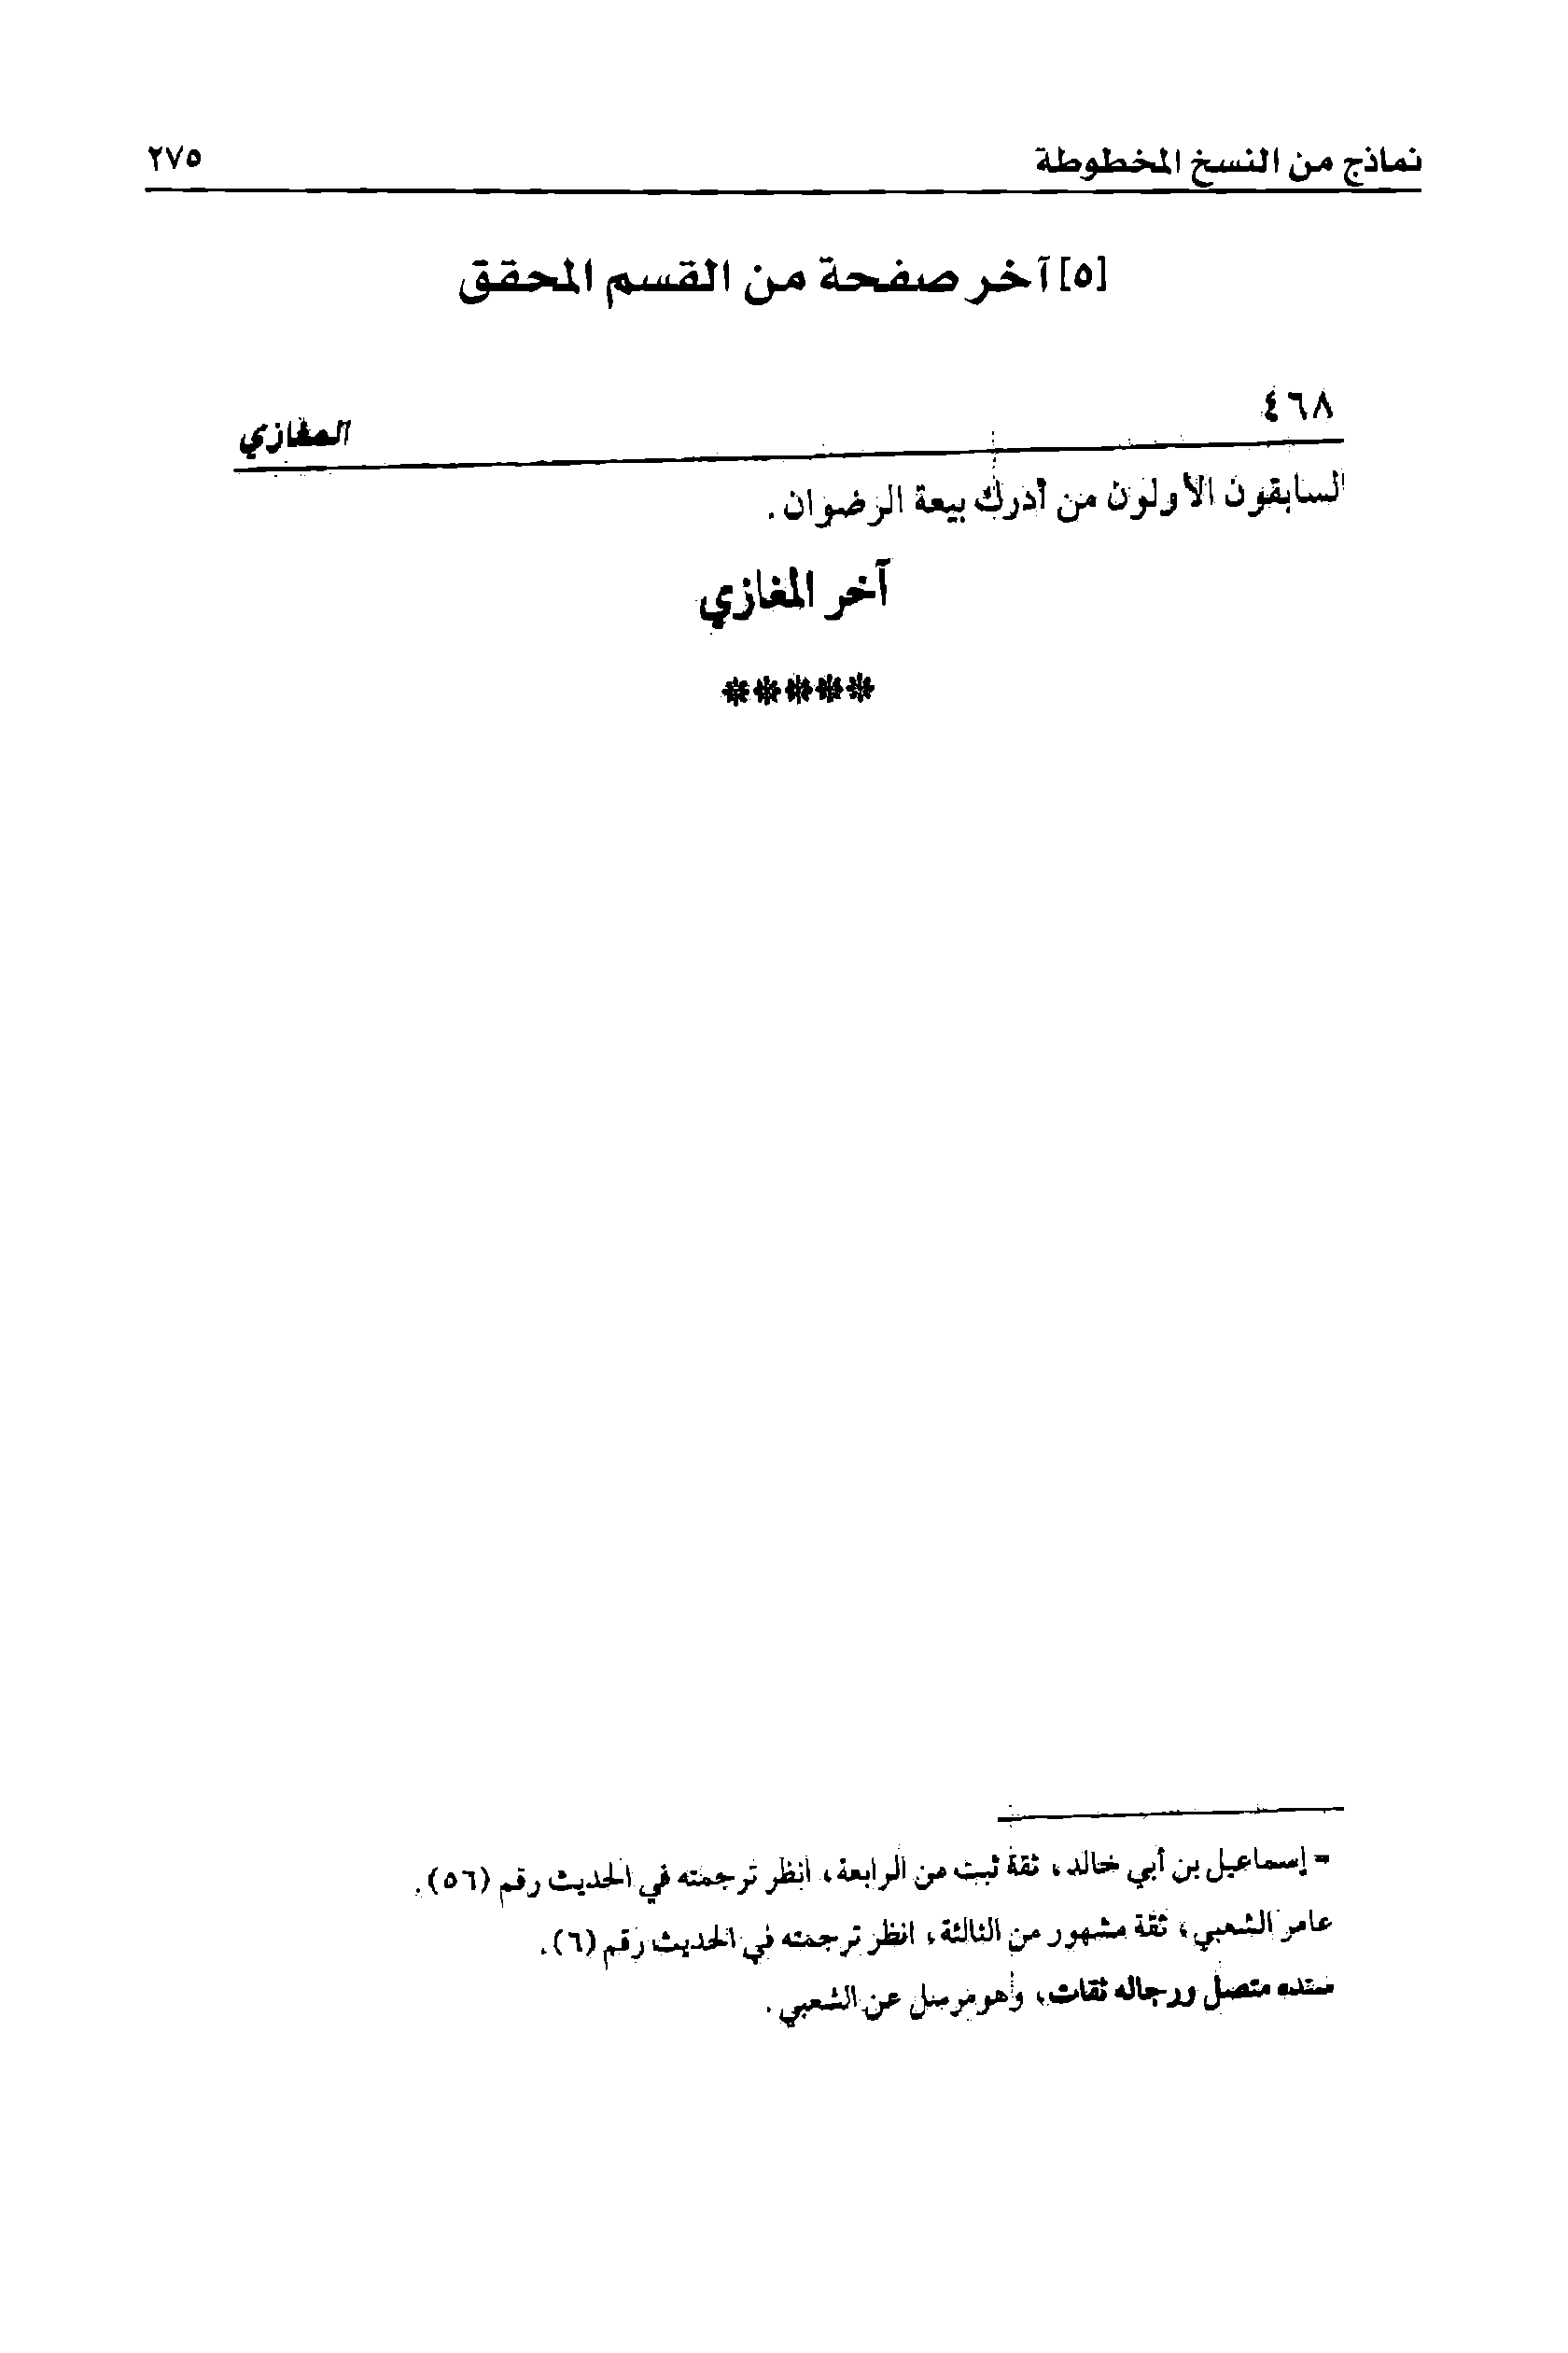 نماذج من النسخ المخطوطة ٢٧٥
[٥] آخر صفحة من القسم المحقق
٤٦٨ المغازي
السابقون الأولون من أدرك بيعة الرضوان .
آخر المغازي
*****
= إسماعيل بن أبي خالد ، ثقة ثبت من الرابعة ، انظر ترجمته في الحديث رقم (٥٦) .
عامر الشعبي ، ثقة مشهور من الثالثة ، انظر ترجمته في الحديث رقم (٦) .
سنده متصل ورجاله ثقات ، وهو مرسل عن الشعبي .